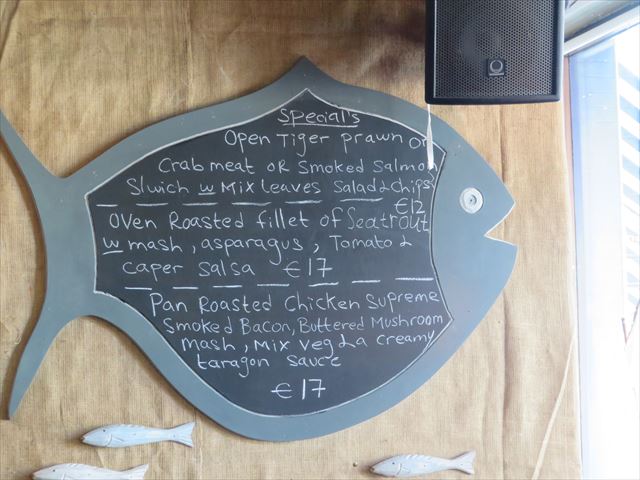 Special's
Open Tiger prawn or
Crab meat OR Smoked Salmo
Slwich w Mix leaves Salad & chips
€12
Oven Roasted fillet of Seatrout
w mash, asparagus, Tomato &
caper salsa €17
Pan Roasted Chicken Supreme
Smoked Bacon, Buttered Mushroom
Mash, Mix veg & a creamy
taragon sauce
€17